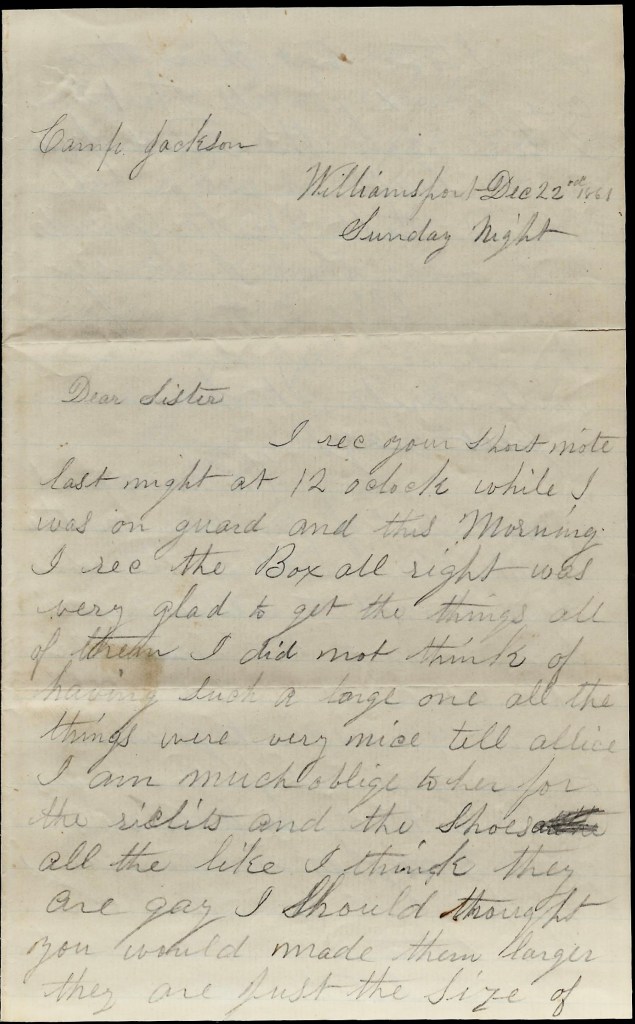 Camp Jackson
Williamsport Dec 22nd 1861
Sunday Night
Dear Sister
I rec your short note
last night at 12 oclock while I
was on guard and this Morning
I rec the Box all right was
very glad to get the things all
of them I did not think of
having such a large one all the
things were very nice tell allice
I am much oblige to her for
the and the Shoes
all the like I think they
are gay I Should thought
you would made them larger
they are just the size of